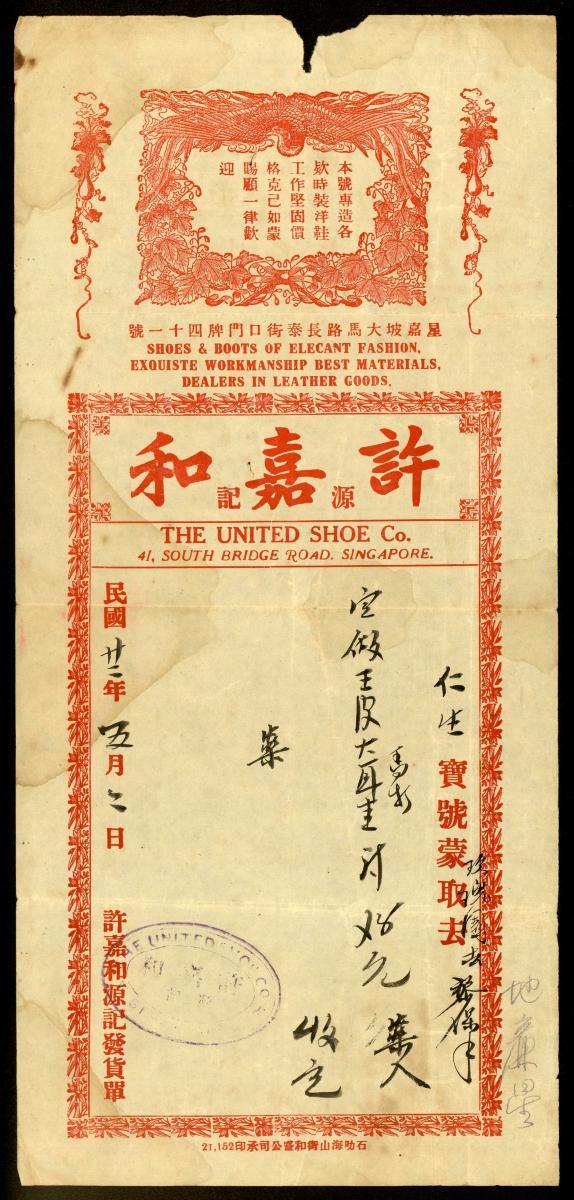 本號專造各
欵時裝洋鞋
工作堅固價
格克己如蒙
賜顧一律歡
迎
星嘉坡大馬路長泰街口門牌四十一號
SHOES & BOOTS OF ELECANT FASHION,
EXQUISTE WORKMANSHIP BEST MATERIALS,
DEALERS IN LEATHER GOODS,
許嘉和
源記
THE UNITED SHOE Co.
41, SOUTH BRIDGE ROAD. SINGAPORE.
仁生 寶號蒙取去
定做
收定
民國廿二年五月六日
許嘉和源記發貨單
THE UNITED SHOE CO.
許嘉和
石叻海山街和豐公司承印21,152